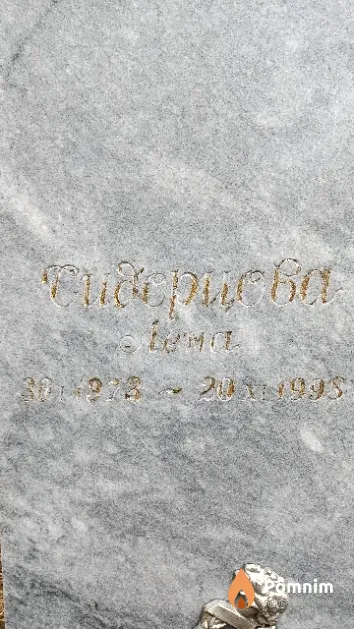 Сидерцова
Лена
30 I 1978 ~ 20 XI 1998
Pomnim